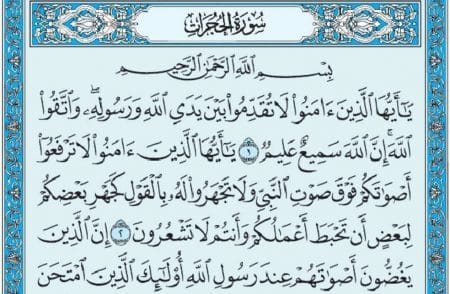 سُورَةُ الْحُجُرَاتِ
بِسْمِ اللَّهِ الرَّحْمَٰنِ الرَّحِيمِ
يَٰٓأَيُّهَا الَّذِينَ ءَامَنُوا۟ لَا تُقَدِّمُوا۟ بَيْنَ يَدَىِ اللَّهِ وَرَسُولِهِۦ ۖ وَاتَّقُوا۟
اللَّهَ ۚ إِنَّ اللَّهَ سَمِيعٌ عَلِيمٌ ۝١ يَٰٓأَيُّهَا الَّذِينَ ءَامَنُوا۟ لَا تَرْفَعُوٓا۟
أَصْوَٰتَكُمْ فَوْقَ صَوْتِ النَّبِىِّ وَلَا تَجْهَرُوا۟ لَهُۥ بِالْقَوْلِ كَجَهْرِ بَعْضِكُمْ
لِبَعْضٍ أَن تَحْبَطَ أَعْمَٰلُكُمْ وَأَنتُمْ لَا تَشْعُرُونَ ۝٢ إِنَّ الَّذِينَ
يَغُضُّونَ أَصْوَٰتَهُمْ عِندَ رَسُولِ اللَّهِ أُو۟لَٰٓئِكَ الَّذِينَ امْتَحَنَ